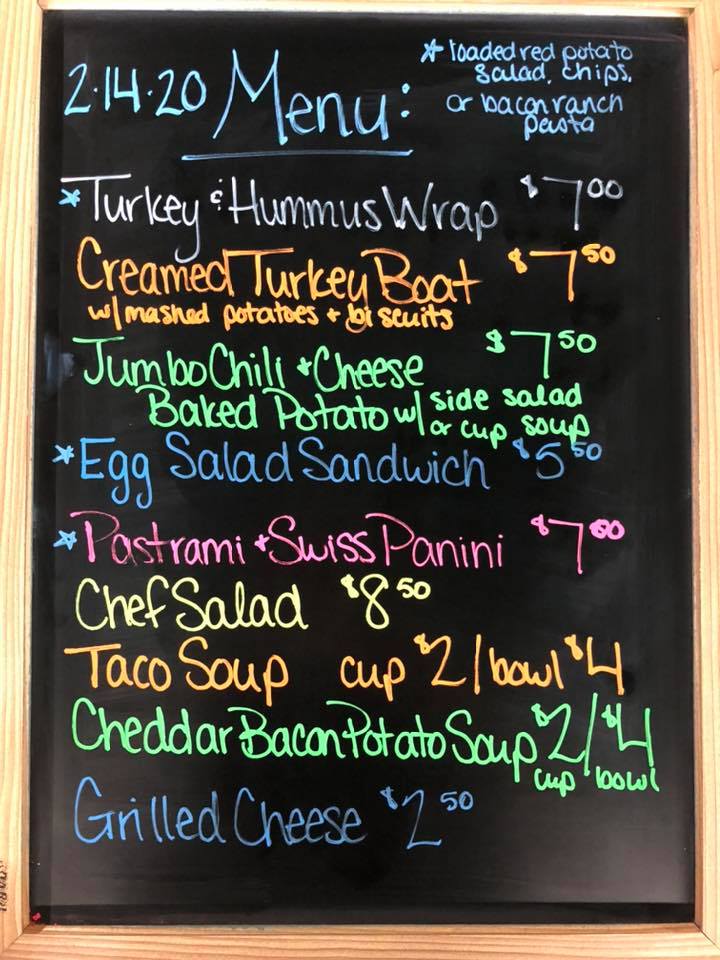 2·14·20 Menu:
* loaded red potato
salad, chips,
or bacon ranch
pasta
* Turkey & Hummus Wrap $7.00
Creamed Turkey Boat $7.50
w/ mashed potatoes + biscuits
Jumbo Chili + Cheese $7.50
Baked Potato w/ side salad
or cup soup
* Egg Salad Sandwich $5.50
* Pastrami + Swiss Panini $7.00
Chef Salad $8.50
Taco Soup cup $2/bowl $4
Cheddar Bacon Potato Soup $2/$4
cup bowl
Grilled Cheese $2.50